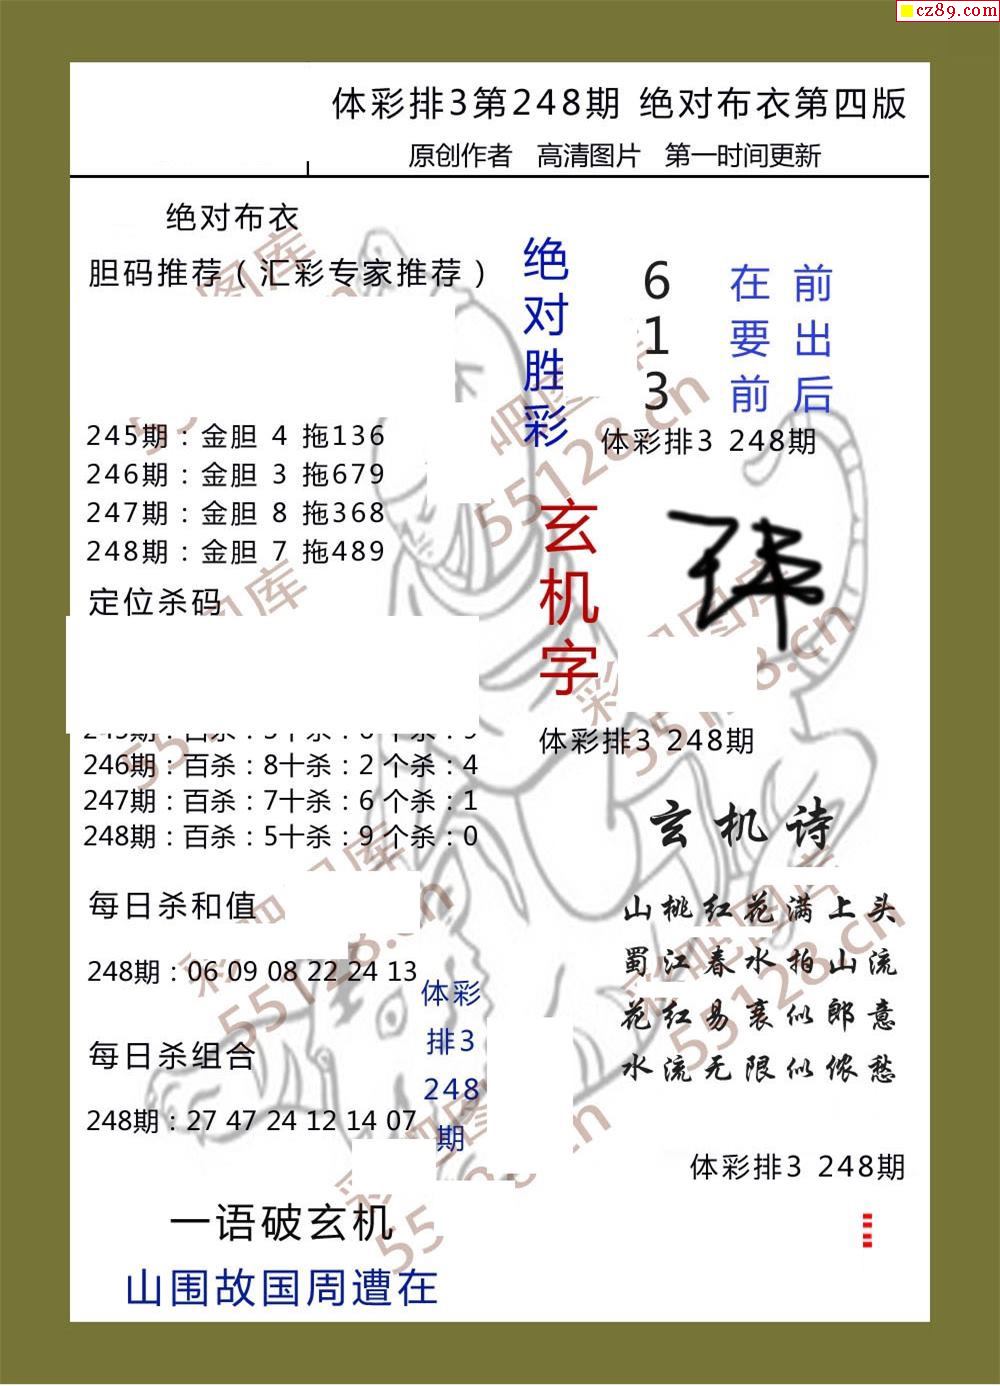 cz89.com
体彩排3第248期 绝对布衣第四版
原创作者 高清图片 第一时间更新
绝对布衣
胆码推荐（汇彩专家推荐）
245期：金胆 4 拖136
246期：金胆 3 拖679
247期：金胆 8 拖368
248期：金胆 7 拖489
定位杀码
246期：百杀：8十杀：2 个杀：4
247期：百杀：7十杀：6 个杀：1
248期：百杀：5十杀：9 个杀：0
每日杀和值
248期：06 09 08 22 24 13
每日杀组合
248期：27 47 24 12 14 07
体彩
排3
248
期
一语破玄机
山围故国周遭在
绝对胜彩
6 在 前
1 要 出
3 前 后
体彩排3 248期
玄机字
体彩排3 248期
玄机诗
山桃红花满上头
蜀江春水拍山流
花红易衰似郎意
水流无限似侬愁
体彩排3 248期
55128.cn
55128.cn
55128.cn